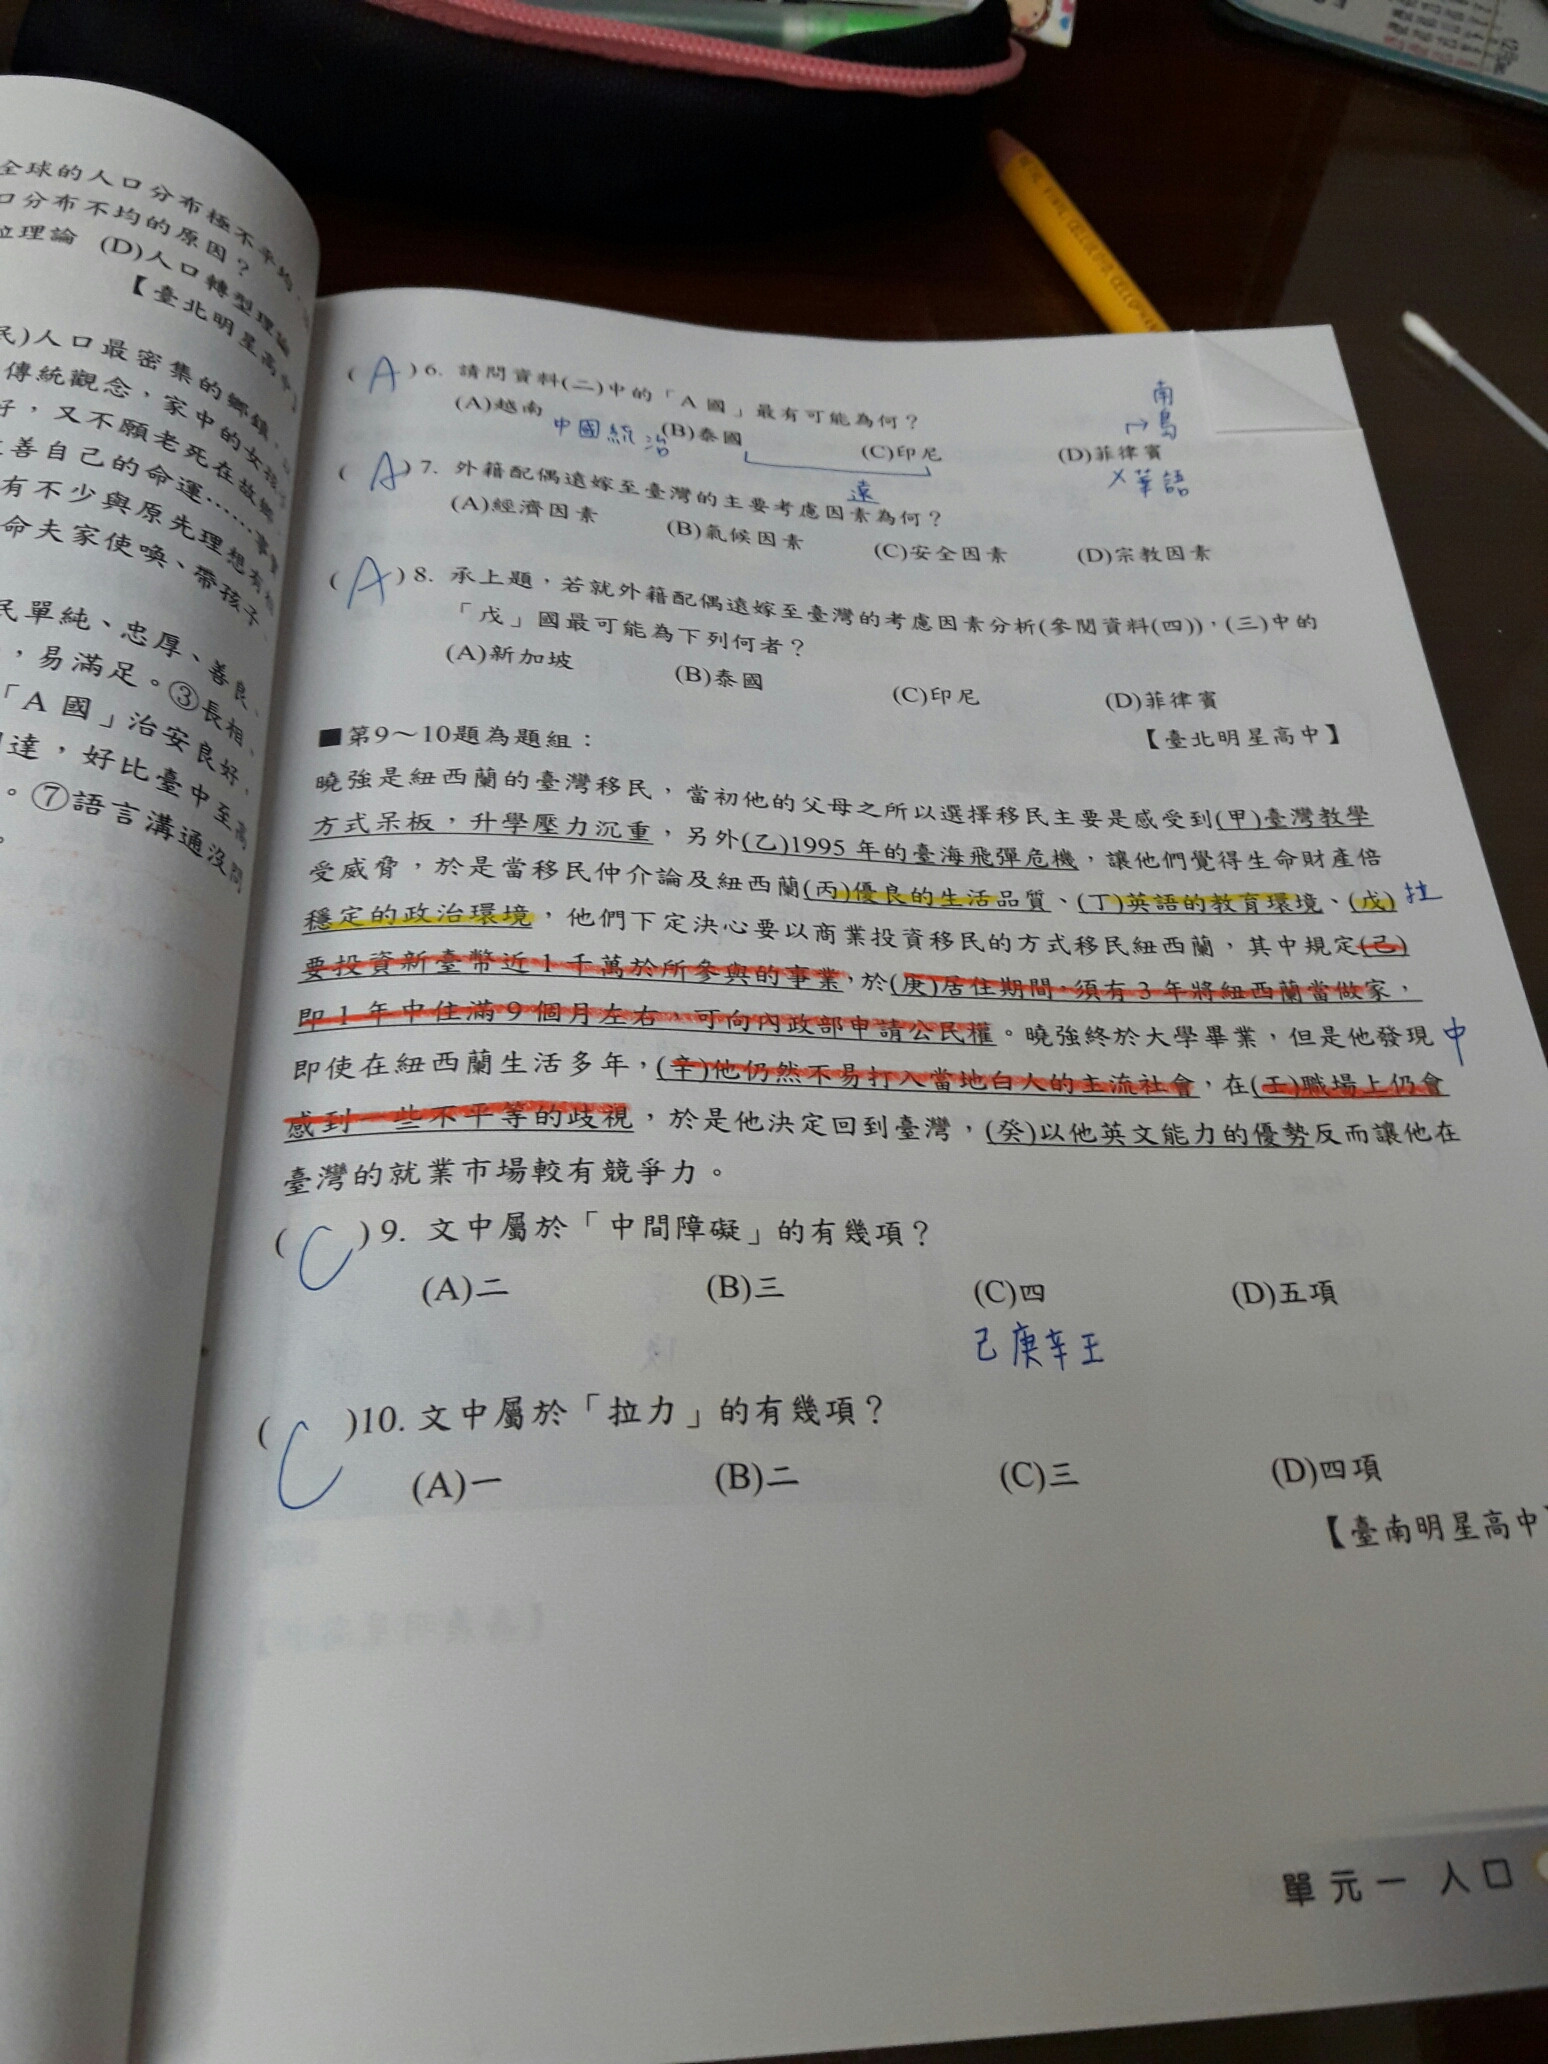 全球的人口分布極不平均
口分布不均的原因?
位理論 (D)人口轉型理論
【臺北明星高中】
民)人口最密集的鄉鎮,
傳統觀念,家中的女孩子
好,又不願老死在故鄉
善自己的命運……事實
有不少與原先理想有
命夫家使喚、帶孩子、
民單純、忠厚、善良、
,易滿足。③長相、
「A國」治安良好、
達,好比臺中至高
。⑦語言溝通沒問
( A )6. 請問資料(二)中的「A國」最有可能為何?
(A)越南 (B)泰國 (C)印尼 (D)菲律賓
中國統治
遠
南島
X華語
( A )7. 外籍配偶遠嫁至臺灣的主要考慮因素為何?
(A)經濟因素 (B)氣候因素 (C)安全因素 (D)宗教因素
( A )8. 承上題,若就外籍配偶遠嫁至臺灣的考慮因素分析(參閱資料(四)),(三)中的
「戊」國最可能為下列何者?
(A)新加坡 (B)泰國 (C)印尼 (D)菲律賓
【臺北明星高中】
■第9~10題為題組:
曉強是紐西蘭的臺灣移民,當初他的父母之所以選擇移民主要是感受到(甲)臺灣教學
方式呆板,升學壓力沉重,另外(乙)1995年的臺海飛彈危機,讓他們覺得生命財產倍
受威脅,於是當移民仲介論及紐西蘭(丙)優良的生活品質、(丁)英語的教育環境、(戊) 拉
穩定的政治環境,他們下定決心要以商業投資移民的方式移民紐西蘭,其中規定(己)
要投資新臺幣近1千萬於所參與的事業,於(庚)居住期間,須有3年將紐西蘭當做家,
即1年中住滿9個月左右,可向內政部申請公民權。曉強終於大學畢業,但是他發現 中
即使在紐西蘭生活多年,(辛)他仍然不易打入當地白人的主流社會,在(壬)職場上仍會
感到一些不平等的歧視,於是他決定回到臺灣,(癸)以他英文能力的優勢反而讓他在
臺灣的就業市場較有競爭力。
( C )9. 文中屬於「中間障礙」的有幾項?
(A)二 (B)三 (C)四 (D)五項
己庚辛壬
( C )10. 文中屬於「拉力」的有幾項?
(A)一 (B)二 (C)三 (D)四項
【臺南明星高中】
單元一 人口